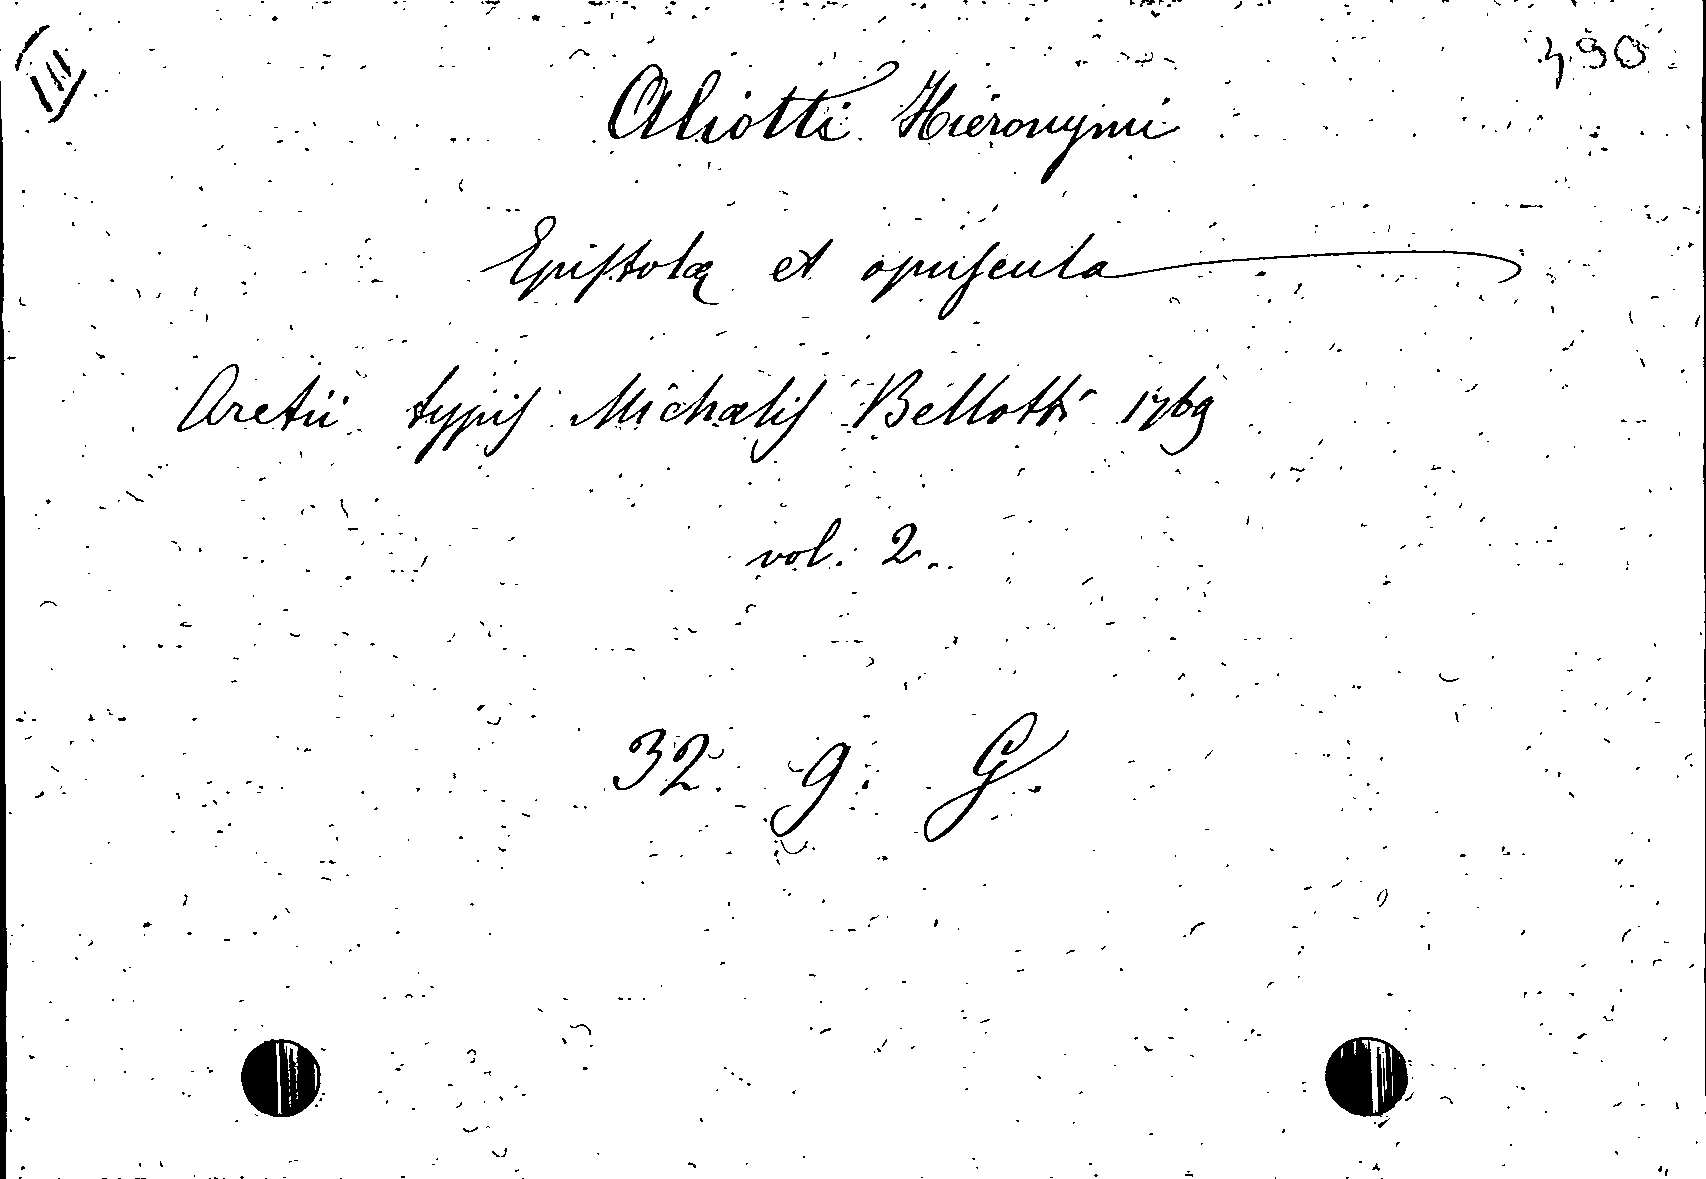 III
490
Aliotti Hieronymi
Epistolæ et opuscula
Aretii typis Michælis Bellotti 1769
vol. 2.
32. 9. G.